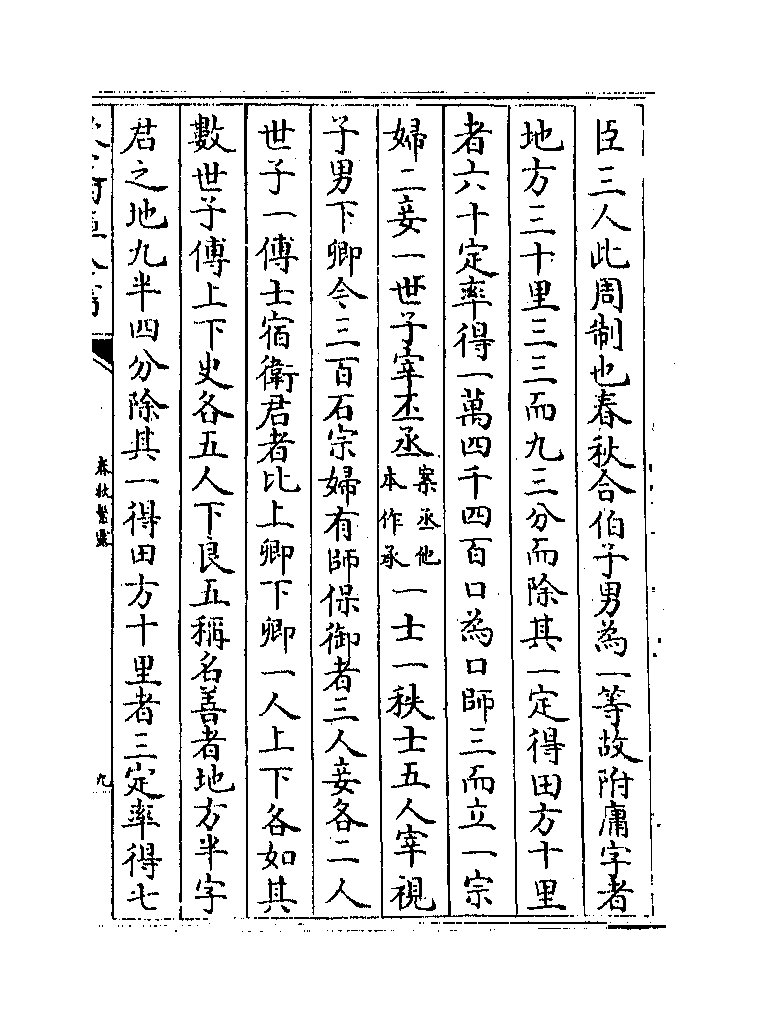 臣三人此周制也春秋合伯子男為一等故附庸字者
地方三十里三三而九三分而除其一定得田方十里
者六十定率得一萬四千四百口為口師三而立一宗
婦二妾一世子宰丕丞案丞他本作承一士一秩士五人宰視
子男下卿今三百石宗婦有師保御者三人妾各二人
世子一傅士宿衛君者比上卿下卿一人上下各如其
數世子傅上下史各五人下良五稱名善者地方半字
君之地九半四分除其一得田方十里者三定率得七
春秋繁露
九